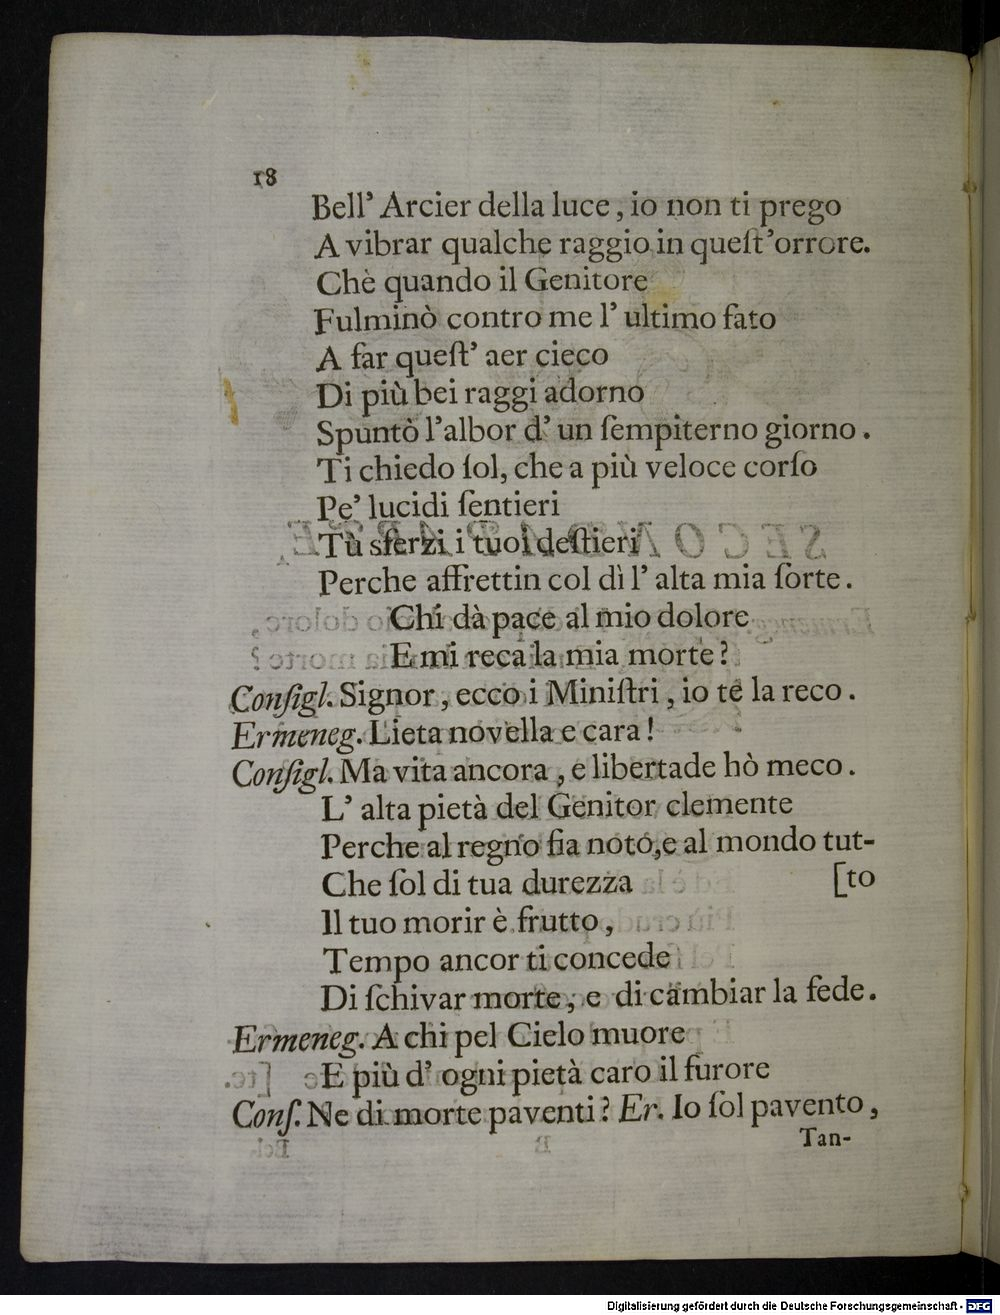 18
Bell' Arcier della luce, io non ti prego
A vibrar qualche raggio in queſt'orrore.
Chè quando il Genitore
Fulminò contro me l' ultimo fato
A far queſt' aer cieco
Di più bei raggi adorno
Spuntò l'albor d' un ſempiterno giorno.
Ti chiedo ſol, che a più veloce corſo
Pe' lucidi ſentieri
Tù sferzi i tuoi deſtieri
Perche affrettin col dì l' alta mia ſorte.
Chi dà pace al mio dolore
E mi reca la mia morte?
Conſigl. Signor, ecco i Miniſtri, io te la reco.
Ermeneg. Lieta novella e cara!
Conſigl. Ma vita ancora, e libertade hò meco.
L' alta pietà del Genitor clemente
Perche al regno ſia noto, e al mondo tut-
Che ſol di tua durezza [to
Il tuo morir è frutto,
Tempo ancor ti concede
Di ſchivar morte, e di cambiar la fede.
Ermeneg. A chi pel Cielo muore
E più d' ogni pietà caro il furore
Conſ. Ne di morte paventi? Er. Io ſol pavento,
Tan-
Digitalisierung gefördert durch die Deutsche Forschungsgemeinschaft - DFG